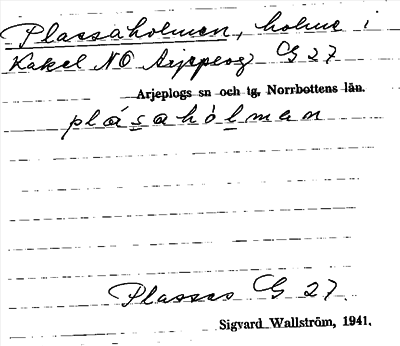 Plassaholmen, holme i
Kakel NO Arjeplog G 27
Arjeplogs sn och tg, Norrbottens län.
plásahòlman
Plassas G 27.
Sigvard Wallström, 1941.